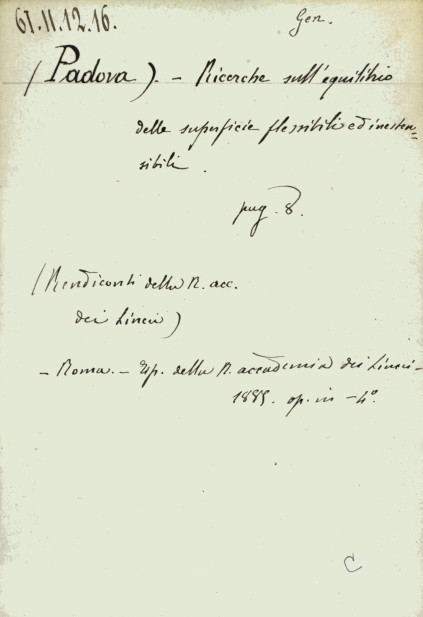 61.II.12.16.
Gen.
(Padova). - Ricerche sull'equilibrio
delle superficie flessibili ed inesten=
sibili.
pag. 8.
(Rendiconti della R. acc.
dei Lincei)
- Roma. - Tip. della R. accademia dei Lincei -
1885. op. in - 4°.
C